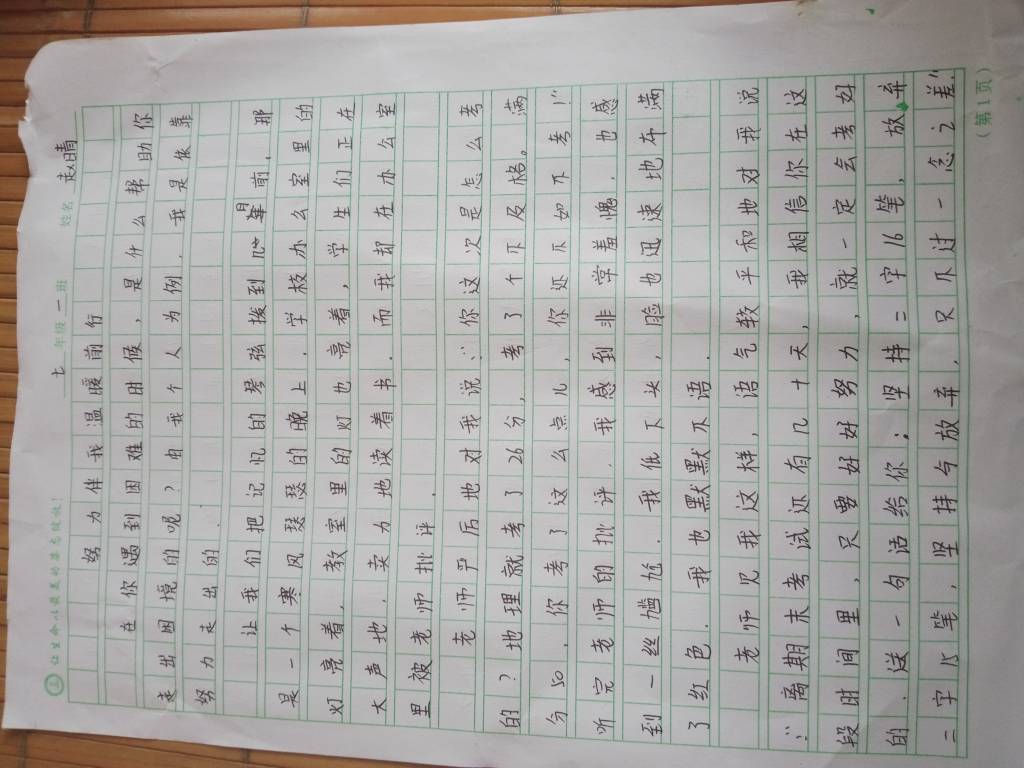 让生命以最美的姿态绽放！
七 年级 一 班 姓名 赵晴
努力伴我温暖前行
在你遇到困难的时候，是什么帮助你
走出困境的呢？由我个人为例，我是依靠
努力走出的．
让我们把记忆的琴弦拨到几个星期前，那
是一个寒风瑟瑟的晚上，学校办么室里的
灯亮着，教室里的灯也亮着，学生们正在
大声地，卖力地读着书．而我却在办么室
里被老师批评．
老师严厉地对我说：“你这次是怎么考
的？地理就考了26分，考了个不及格。满
分50，你考了这么点儿，你还不如不考！”
听完老师的批评．我感到非学羞愧．也感
到一丝尴尬．我低下头，脸也迅速地布满
了红色．我也默默不语．
老师见我这样，语气较平和地对我说
：“离期末考试还有几十天，我相信你在这
段时间里，只要好好努力，就一定会考好
的．送一句话给你；坚持二字16笔，放弃
二字15笔，坚持今放弃，只不过一念之差”
（第1页）